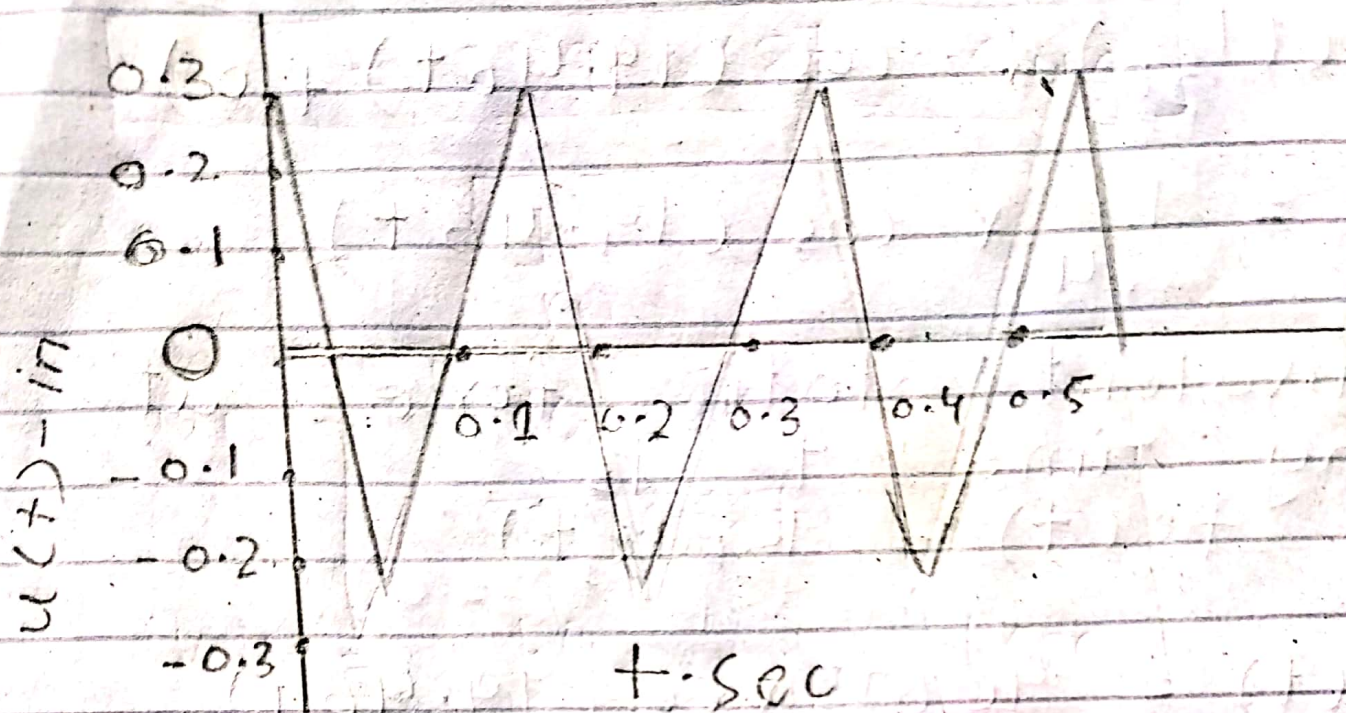 0.3
0.2
0.1
0
- 0.1
- 0.2
- 0.3
u(t)-in
0.1 0.2 0.3 0.4 0.5
t.sec